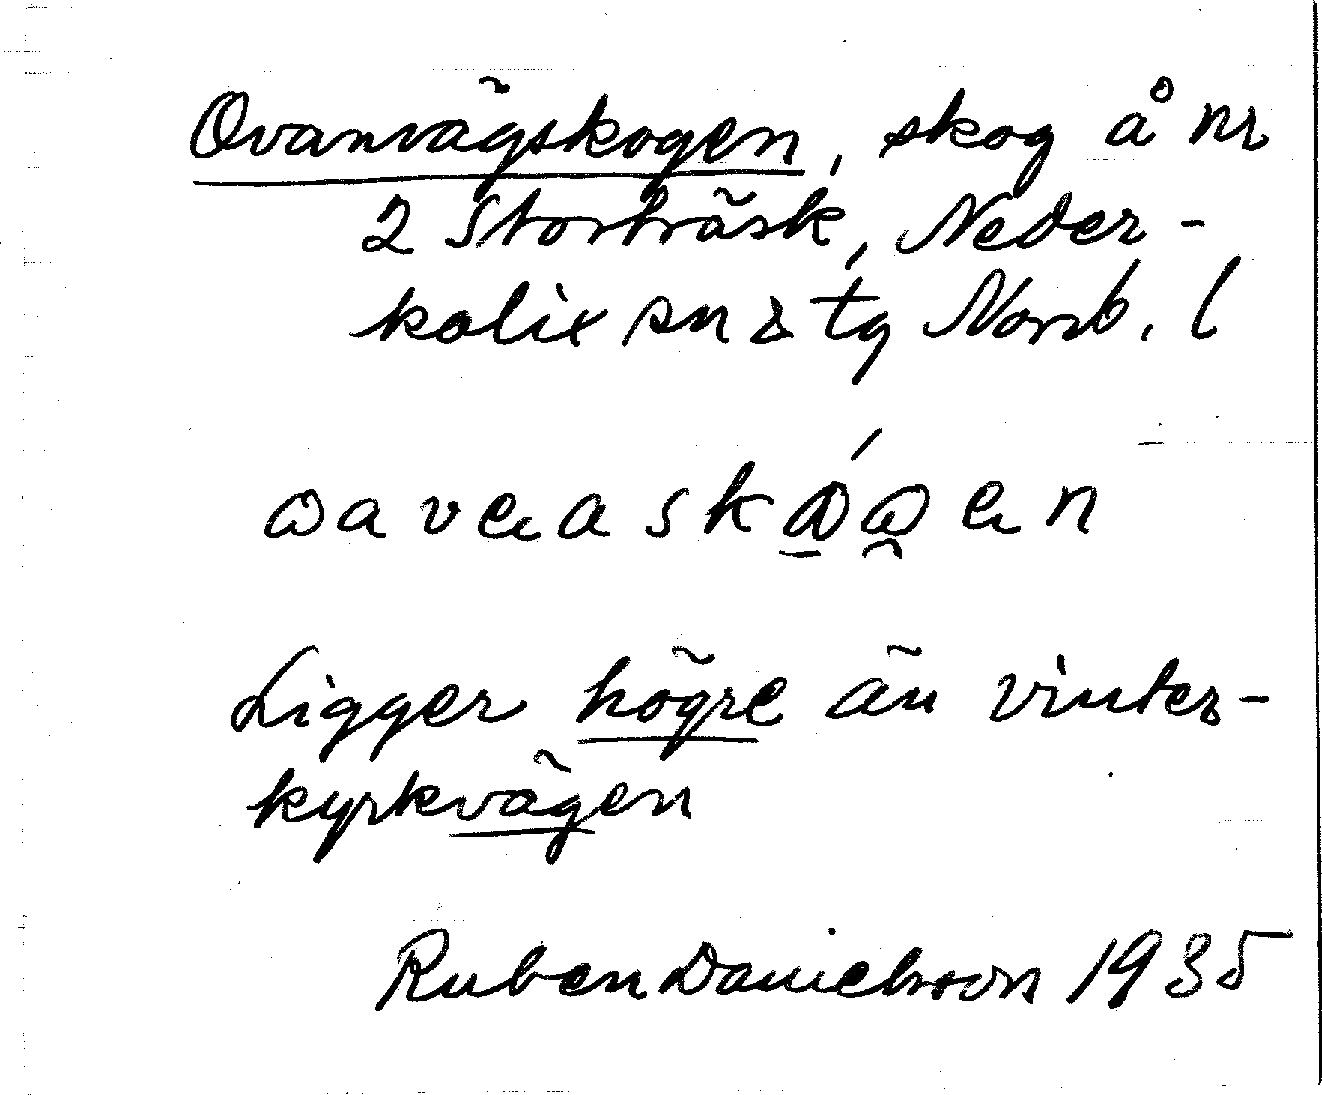 Ovanvägskogen, skog å nr
2 Storträsk, Neder-
kalix sn & tg Norrb. l
Ligger högre än vinter-
kyrkvägen
Ruben Danielsson 1935